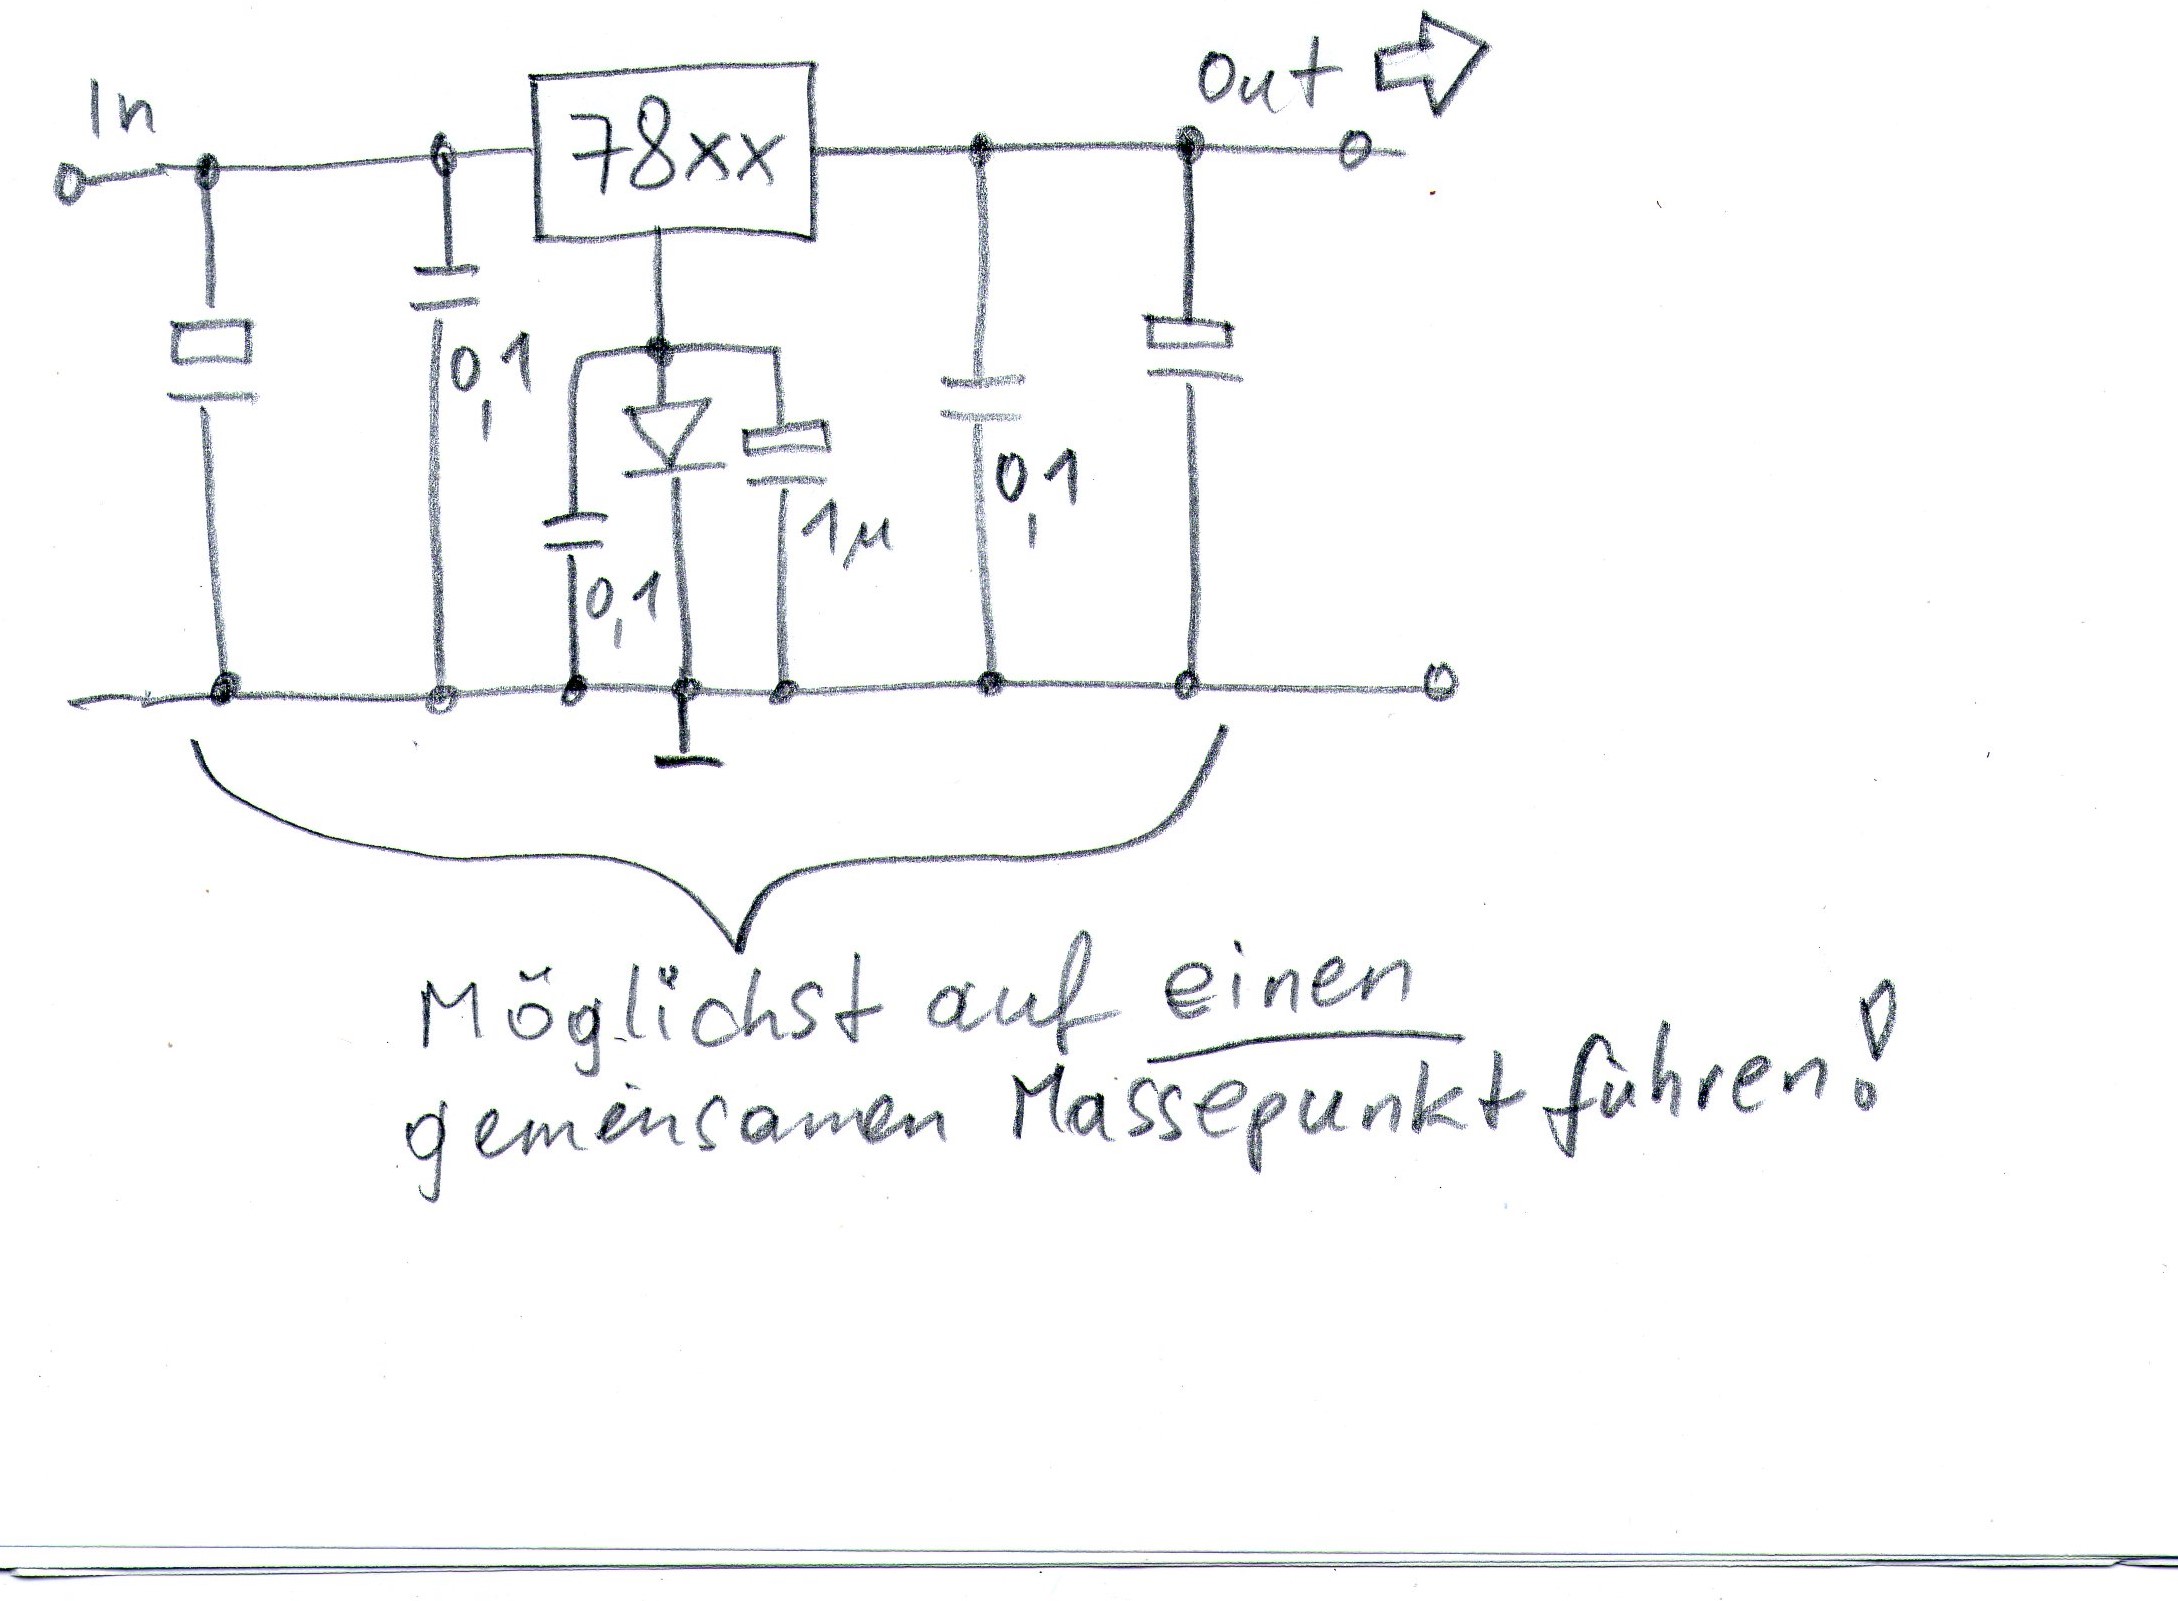 In
Out
78xx
0,1
0,1
1µ
0,1
Möglichst auf einen
gemeinsamen Massepunkt führen!